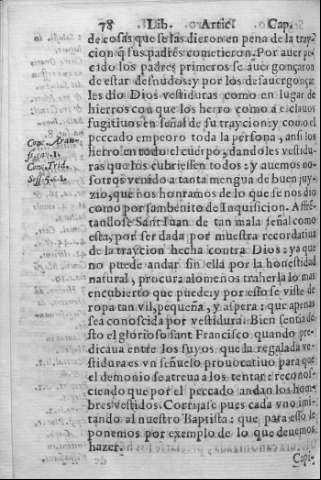 78 Lib. Artic. Cap.
de cosas que se las dieron en pena de la tray-
cion q̃ sus padres cometieron. Por auer pe-
cido los padres primeros se auergonçaron
de estar desnudos: y por los desauergonçar
les dio Dios vestiduras como en lugar de
hierros con que los herro como a esclauos
fugitiuos en señal de su traycion: y como el
peccado empeoro toda la persona, ansi los
herro en todo el cuerpo, dandoles vestidu-
ras que los cubriessen todos: y auemos no-
sotros venido a tanta mengua de buen juy-
zio, que nos honramos de lo que se nos dio
como por sambenito de Inquisicion. Affré-
tandose Sant Iuan de tan mala señal como
esta, por ser dada por muestra recordatiua
de la traycion hecha contra Dios: ya que
no puede andar sin ella por la honestidad
natural, procura alomenos traherla lo mas
encubierto que puede: y por esto se viste de
ropa tan vil, pequeña, y aspera: que apenas
sea conoscida por vestidura. Bien sentia de
sto el glorioso sant Francisco quando pre-
dicaua entre los suyos que la regalada ve-
stidura es vn señuelo prouocatiuo para que
el demonio se atreua a los tentar: reconos-
ciendo que por el peccado andan los hom-
bres vestidos. Corrijase pues cada vno imi-
tando al nuestro Baptista: que para esso le
ponemos por exemplo de lo que deuemos
hazer.
Cap.
Conc. Arau-
Conc. Trid.
Sess. 5. c. 1.